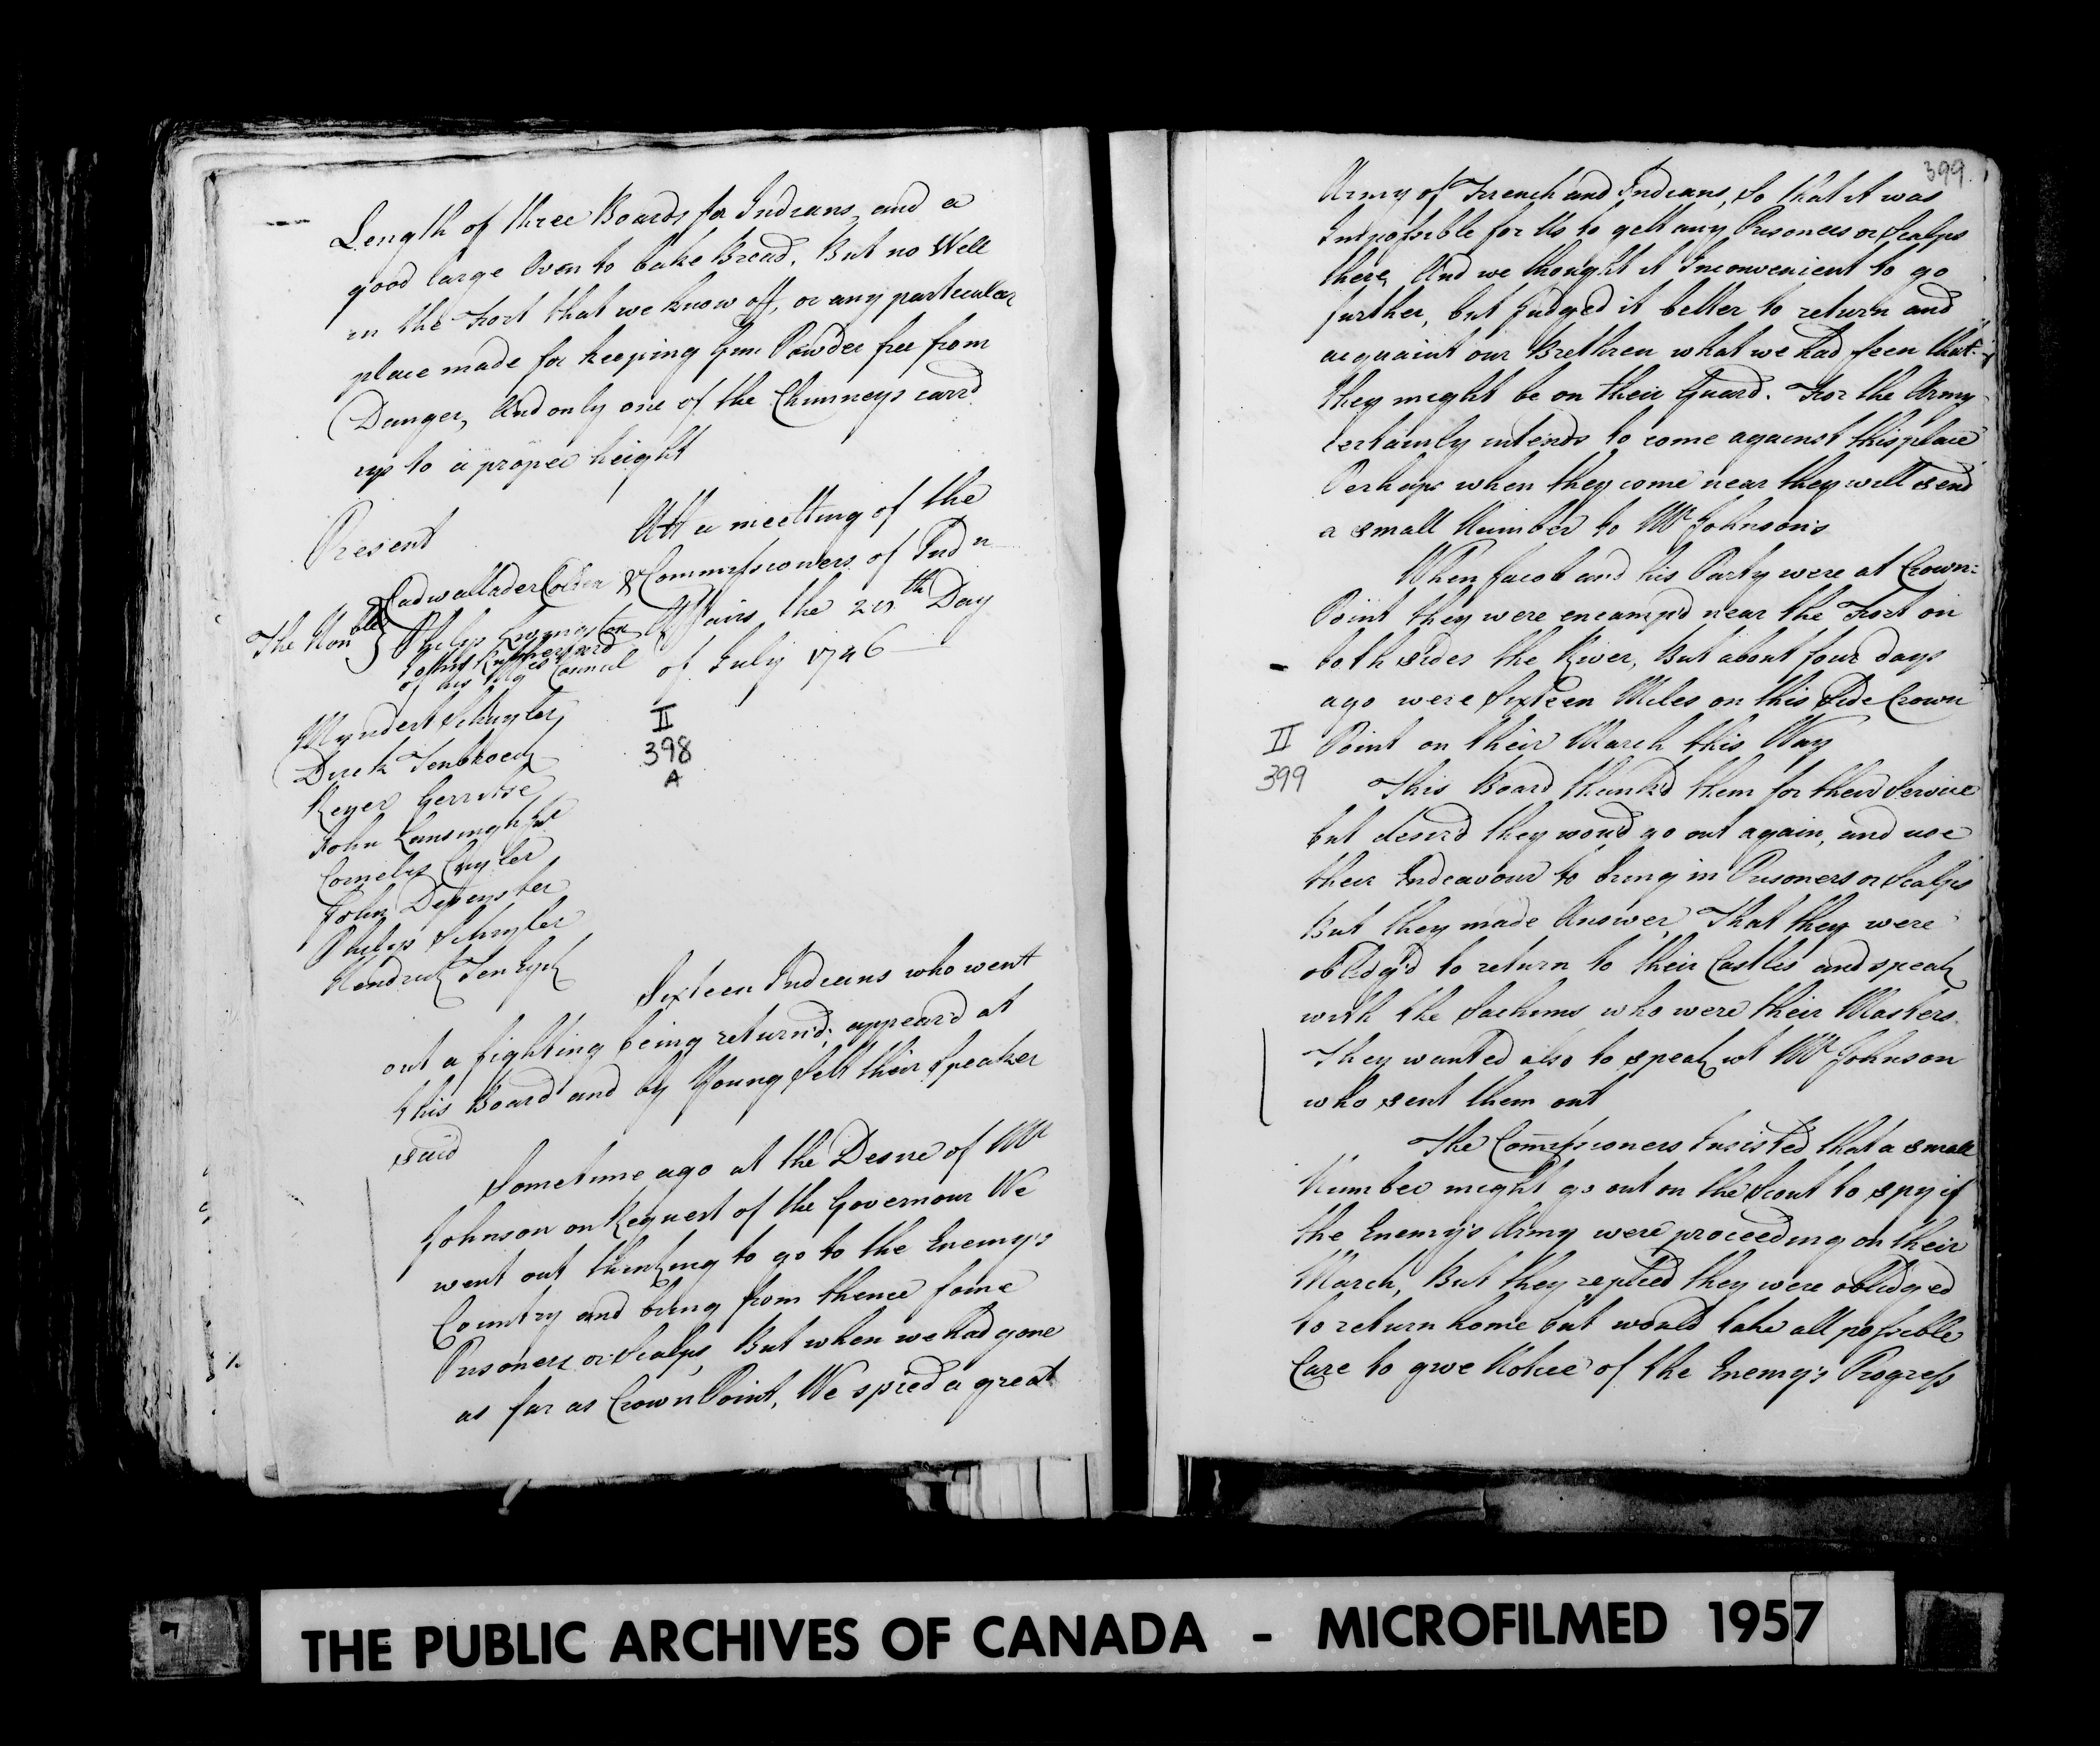 Length of three Boards for Indians, and a
good large Oven to bake Bread, But no Well
in the Fort that we know off, or any particular
place made for keeping Gun Powder free from
Danger, And only one of the Chimneys carrd
up to a proper height
Present
Att a meetting of the
Commissioners of Indn
Affairs the 20th Day
of July 1746
The Honble
Cadwallader Colden &
Philip Livingston
John Rutherford
of his Majes Council
Myndert Schuyler
Dirck Tenbroeck
Reyer Gerritse
John Lansingh Junr
Cornelis Cuyler
John Depeyster
Philip Schuyler
Hendrick Ten Eyck
II
398
A
Sixteen Indians who went
out a fighting being return'd, appear'd at
this Board and by Young Sett their Speaker
said
Sometime ago at the Desire of Mr
Johnson on Request of the Governour We
went out thinking to go to the Enemy's
Country and bring from thence some
Prisoners or Scalps, But when we had gone
as far as Crown Point, We spied a great
399
Army of French and Indians, So that it was
Impossible for Us to gett any Prisoners or Scalps
there, And we thought it Inconvenient to go
further, but Judged it better to return and
acquaint our Brethren what we had seen that
they might be on their Guard. For the Army
certainly intends to come against this place
Perhaps when they come near they will send
a small Number to Mr Johnson's
When Jacob and his Party were at Crown=
Point they were encamp'd near the Fort on
both sides the River, But about four days
ago were Sixteen Miles on this Side Crown
Point on their March this Way
II
399
This Board thank'd them for their Service
but desir'd they would go out again, and use
their Endeavour to bring in Prisoners or Scalps
But they made Answer, That they were
obledg'd to return to their Castles and speak
with the Sachims who were their Masters.
They wanted also to speak wt Mr Johnson
who sent them out
The Comissioners Insisted that a small
Number might go out on the Scout to spy if
the Enemy's Army were proceeding on their
March, But they replied they were obledged
to return home but would take all possible
Care to give Notice of the Enemy's Progress
THE PUBLIC ARCHIVES OF CANADA - MICROFILMED 1957